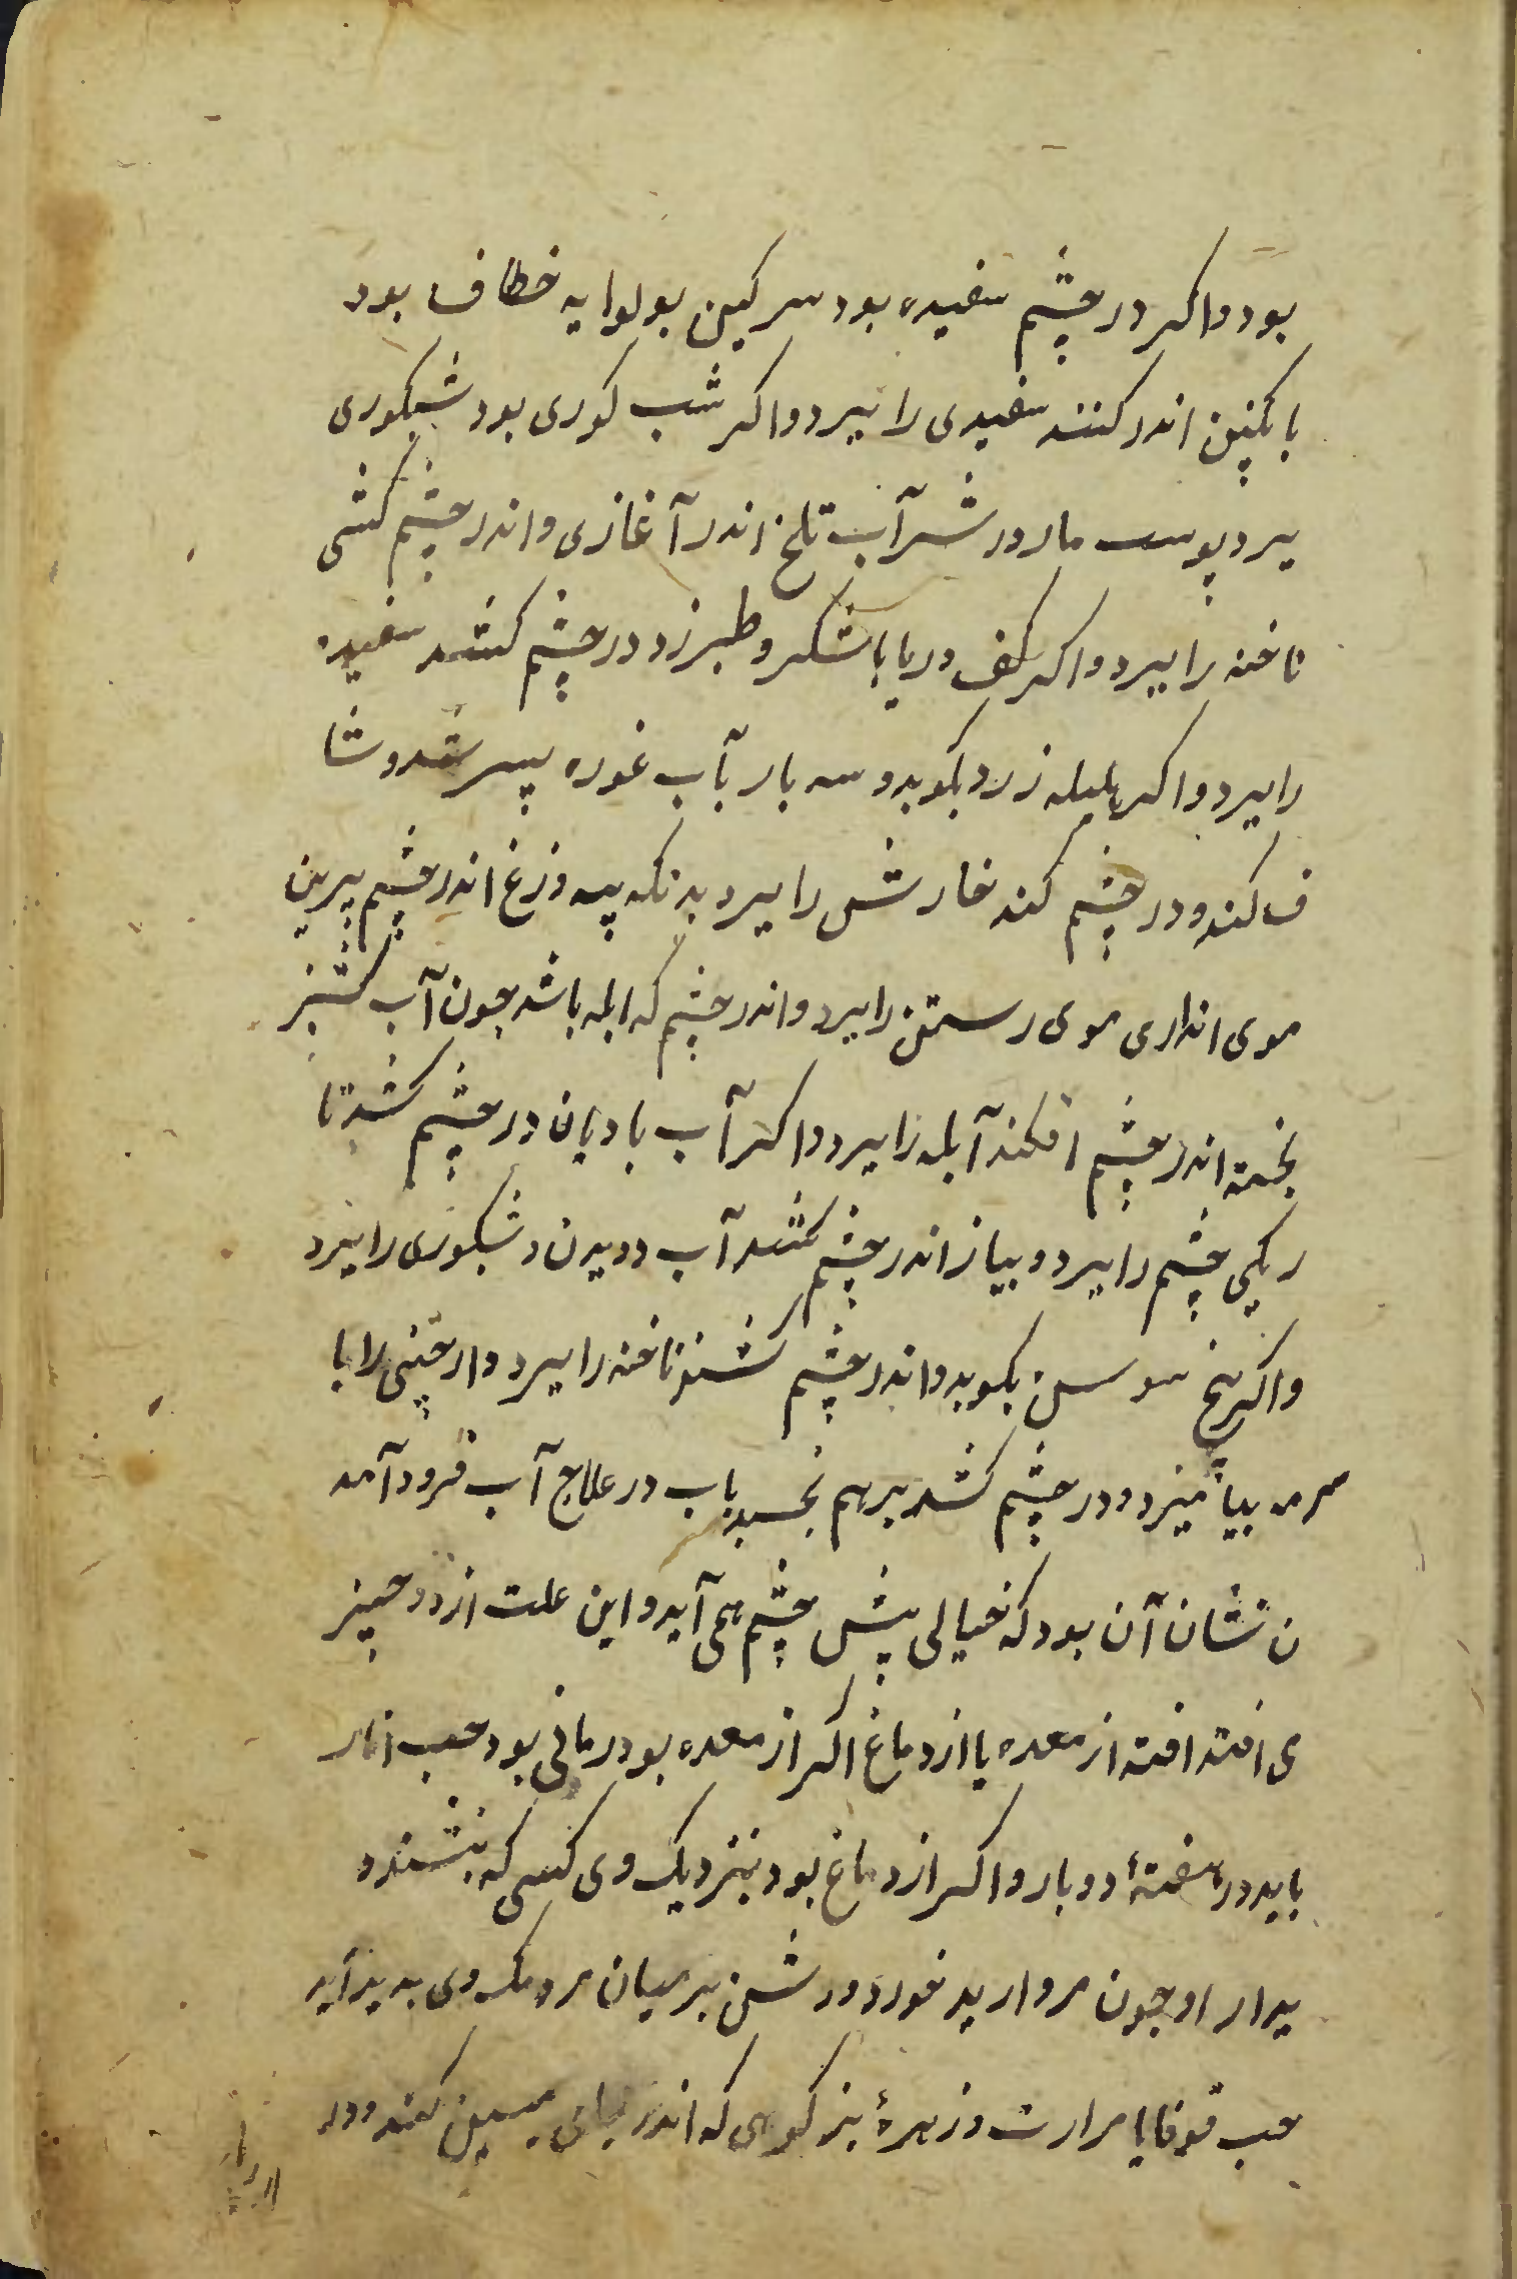 بود واکر در چشم سفیده بود سرکین بولوایه خطاف بود
بانکپن اندر کنند سفیدی را ببرد واکر شب کوری بود شبکوری
ببرد پوست مار در شرآب تلخ اندر آغازی و اندر چشم کشی
ناخنه را ببرد واکر کف دریا با شکر و طبرزد در چشم کشد سفیده
را ببرد واکر هلیله زرد بکوبد و سه بار بآب غوره بپسرشد و شا
ف کند و در چشم کند خارش را ببرد بدنکه پیه وزغ اندر چشم پیرین
موی اندازی موی رستن را ببرد و اندر چشم که ابله باشد چون آب کشنیز
بخمته اندر چشم افکند آبله را ببرد واکر آب بادیان در چشم کشد تا
ریکی چشم را ببرد و بیاز اندر چشم کشد آب دویدن و شبکوری را ببرد
واکر بیخ سوسن بکوبد و اندر چشم کشد ناخنه را ببرد دارچینی را با
سرمه بیامیزد و در چشم کشد برهم نخسبد باب در علاج آب فرود آمد
ن نشان آن بود که خیالی پیش چشم همی آید و این علت از دو چیز
ی افتد افتد از معده یا از دماغ اکر از معده بود درمانی بود حب انار
باید در هفتۀ دو بار واکر از دماغ بود بنزدیک وی کسی که بنشیند و
پدار او چون مروارید خورد و روشن بر میان مردمک وی بدید آید
حب قوفایا مرارت و زهرۀ بز کوهی که اندر کند و در